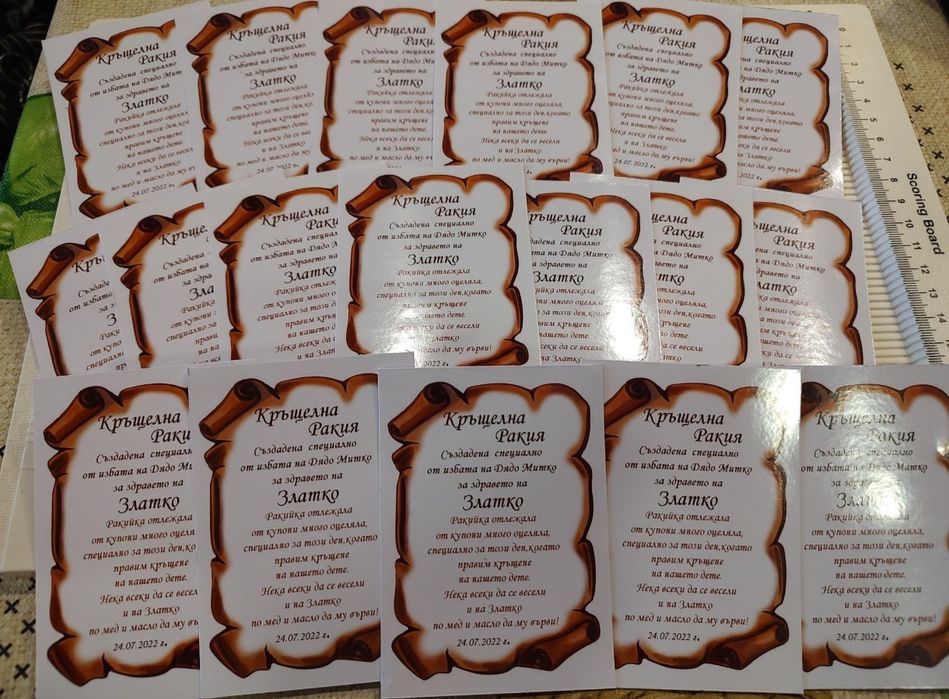 Кръщелна
Ракия
Създадена специално
от избата на Дядо Митко
за здравето на
Златко
Ракийка отлежала
от купони много оцеляла,
специално за този ден,когато
правим кръщене
на нашето дете.
Нека всеки да се весели
и на Златко
по мед и масло да му върви!
24.07.2022 г.
Scoring Board